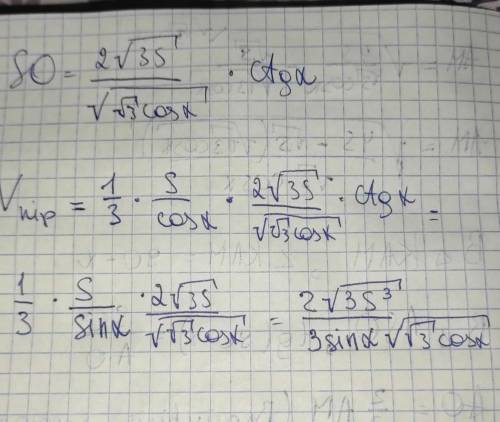 SO = \frac{2\sqrt{3S}}{\sqrt{\sqrt{3}\cos\alpha}} \cdot ctg\alpha
V_{пір} = \frac{1}{3} \cdot \frac{S}{\cos\alpha} \cdot \frac{2\sqrt{3S}}{\sqrt{\sqrt{3}\cos\alpha}} \cdot ctg\alpha =
\frac{1}{3} \cdot \frac{S}{\sin\alpha} \cdot \frac{2\sqrt{3S}}{\sqrt{\sqrt{3}\cos\alpha}} = \frac{2\sqrt{3S^3}}{3\sin\alpha\sqrt{\sqrt{3}\cos\alpha}}